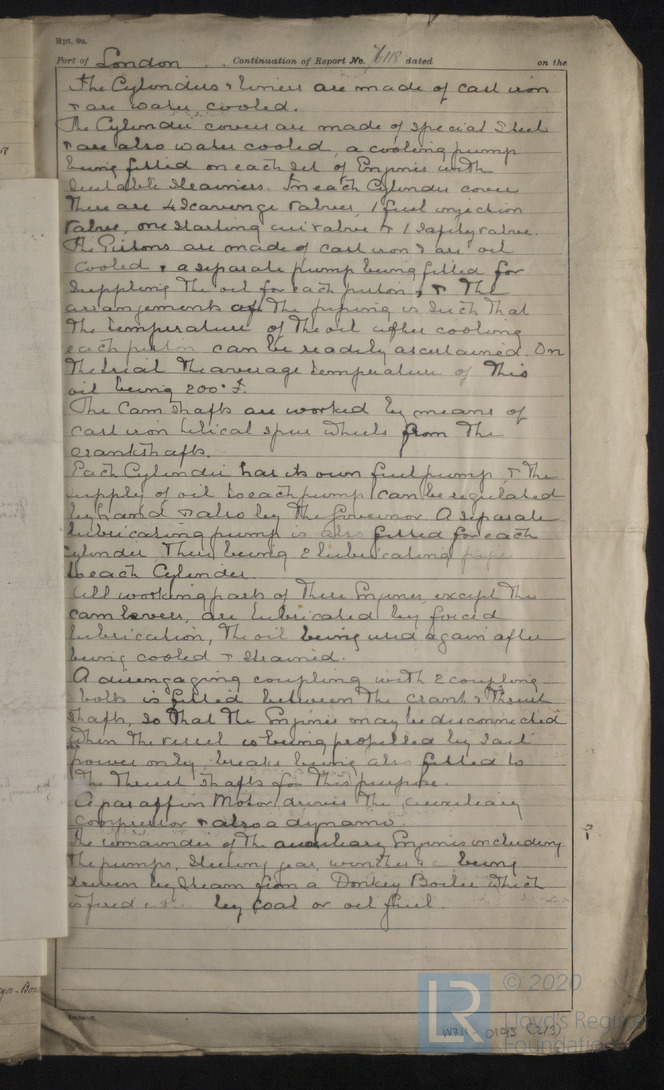 Rpt. 9a.
Port of London Continuation of Report No. 76118 dated on the
The Cylinders & liners are made of cast iron
& are water cooled.
The Cylinder covers are made of special steel
& are also water cooled, a cooling pump
being fitted on each set of Engines with
suitable strainers. In each Cylinder cover
there are 4 Scavenge valves, 1 fuel injection
valve, one starting air valve & 1 safety valve.
The Pistons are made of cast iron & are oil
cooled, a separate pump being fitted for
supplying the oil for each piston, & the
arrangements of the piping is such that
the temperature of the oil after cooling
each piston can be readily ascertained. On
the trial the average temperature of this
oil being 200° F.
The Cam shafts are worked by means of
cast iron helical spur wheels from the
crankshafts.
Each Cylinder has its own fuel pump, & the
supply of oil to each pump can be regulated
by hand & also by the Governor. A separate
lubricating pump is also fitted for each
cylinder there being 2 lubricating pipes
to each Cylinder.
All working parts of these Engines, except the
cam levers, are lubricated by forced
lubrication, the oil being used again after
being cooled & strained.
A disengaging coupling with 2 coupling
bolts is fitted between the crank & thrust
shafts, so that the Engines may be disconnected
when the vessel is being propelled by sail
power only, breaks being also fitted to
the thrust shafts for this purpose.
A paraffin Motor drives the auxiliary
compressor & also a dynamo.
The remainder of the auxiliary Engines including
the pumps, steering gear, winches being
driven by steam from a Donkey Boiler which
is fired by coal or oil fuel.
© 2020
Lloyd's Register
Foundation
LR
W711-0195 (2/3)